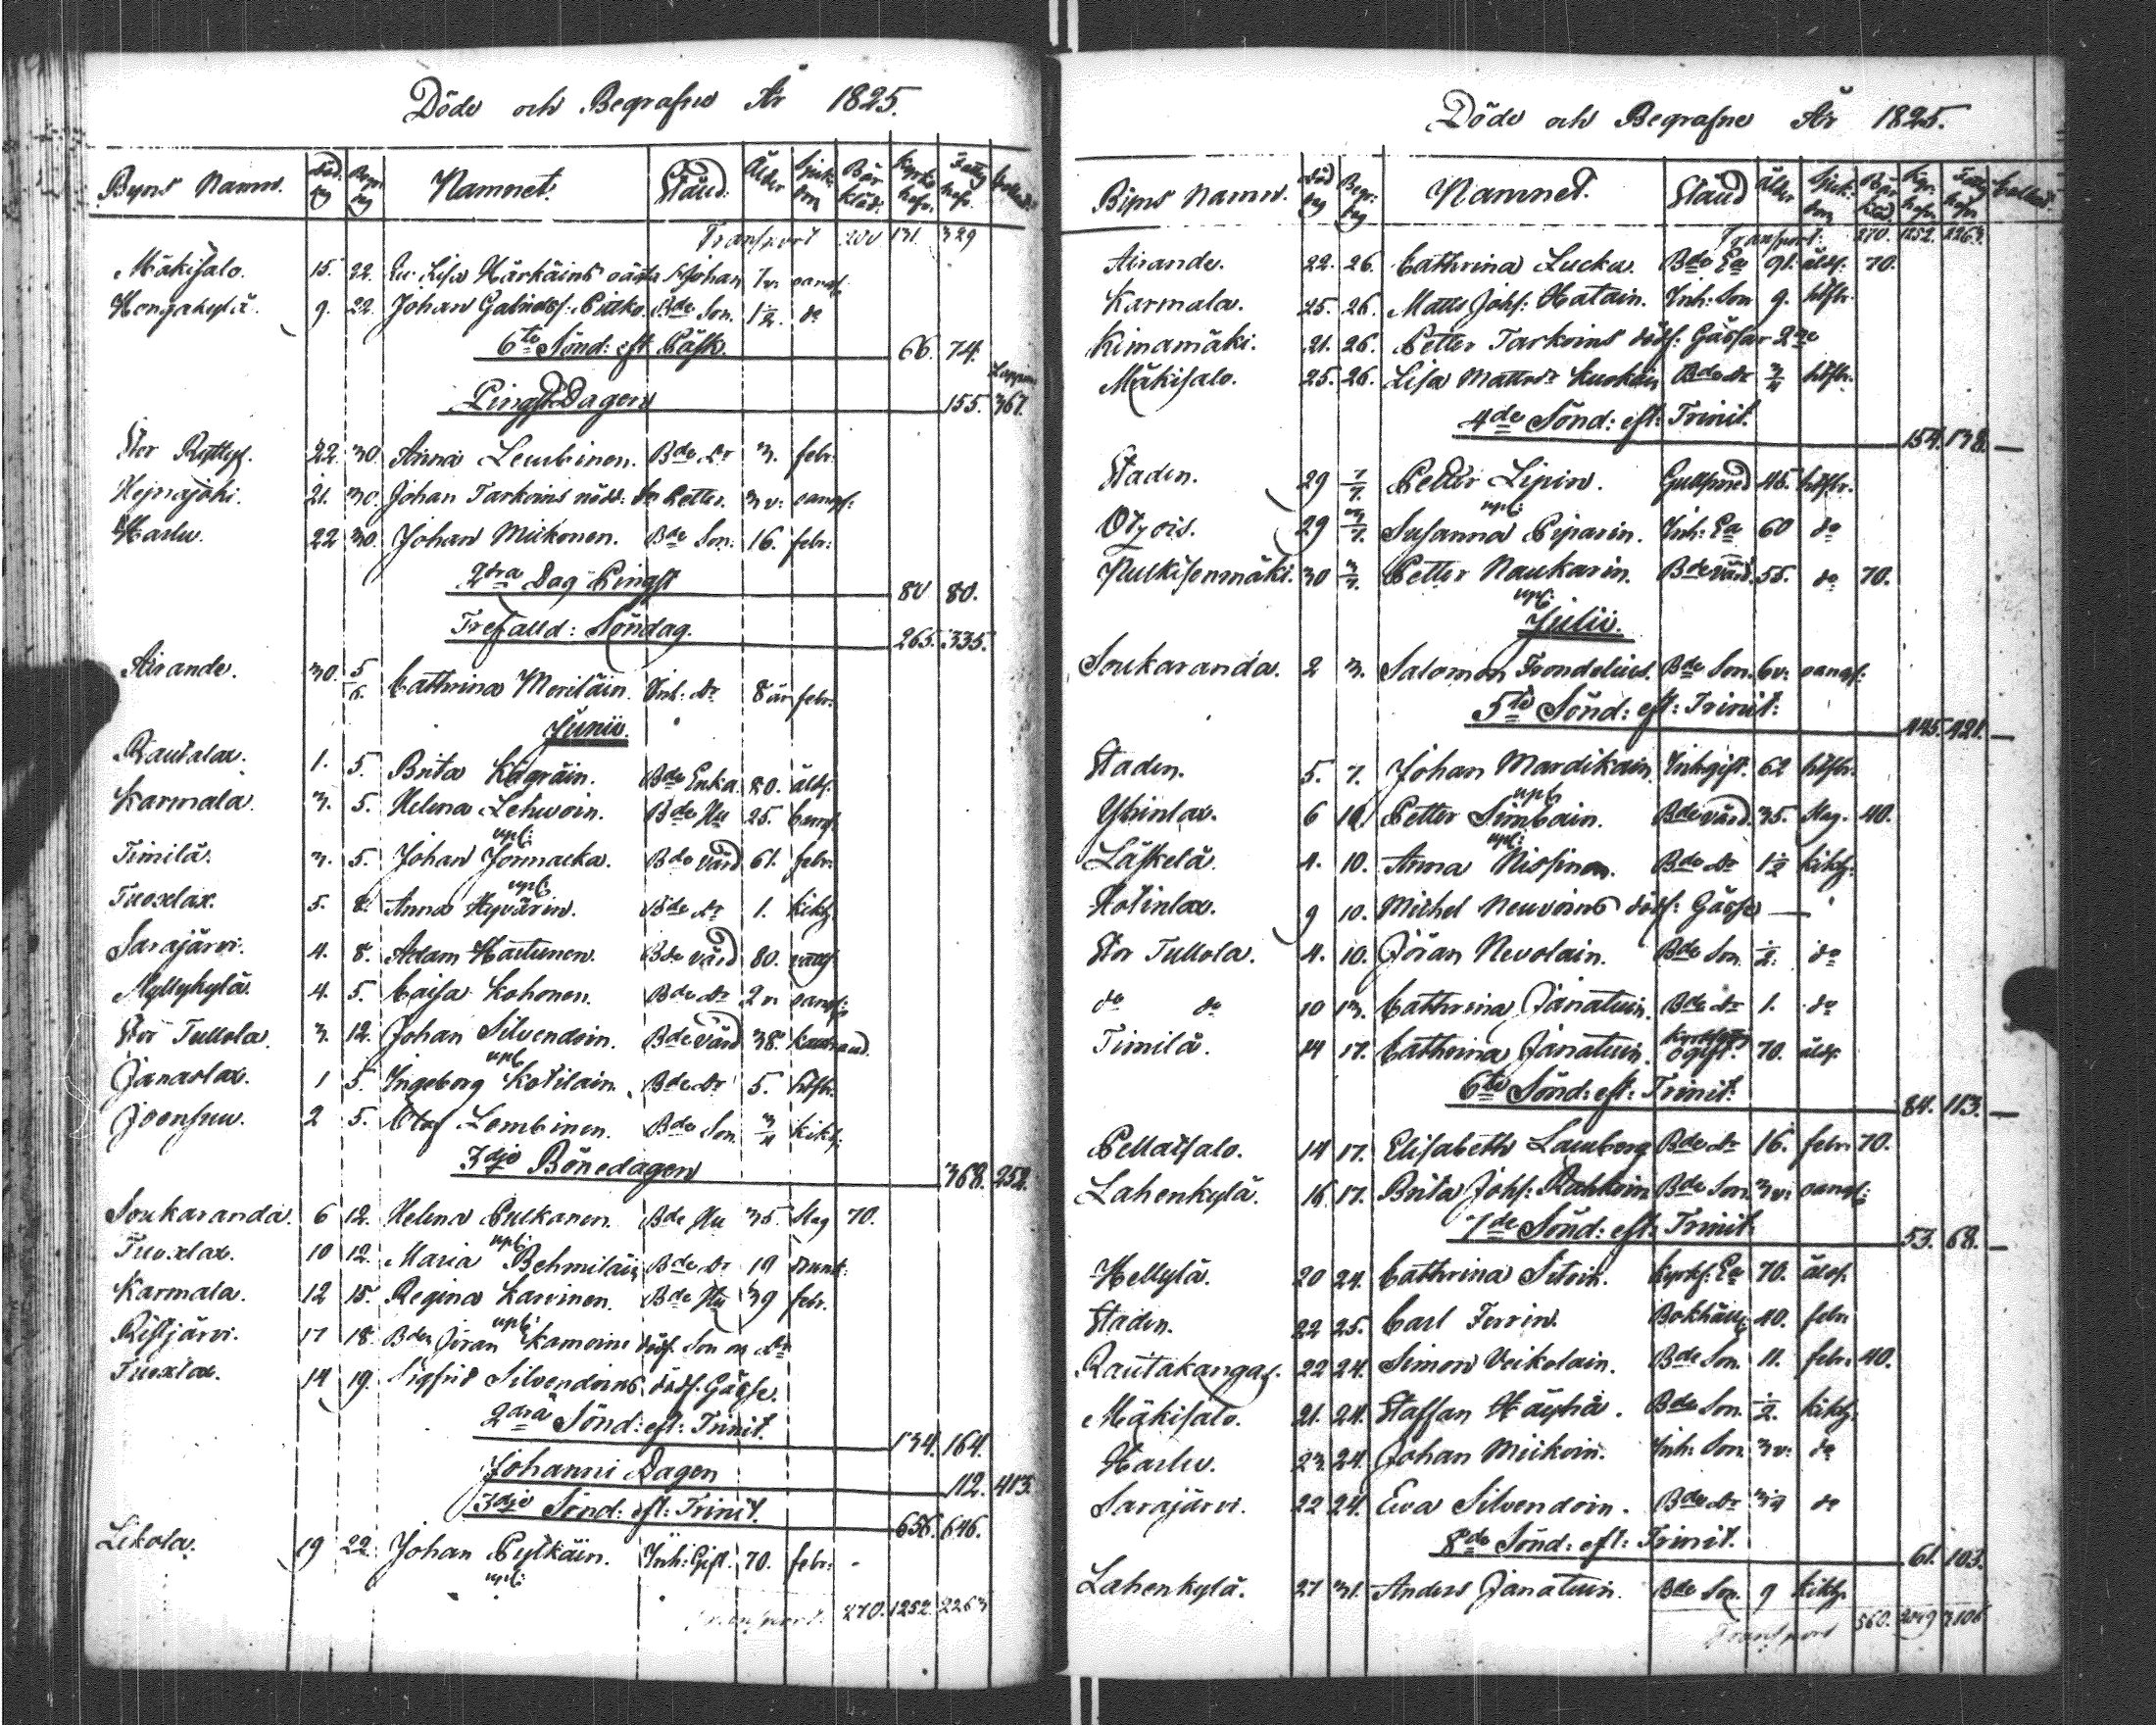 Döde och Begrafne År 1825.
Byns Namn. Död: Begr: Namnet. Stånd: Ålder Sjuk: dom Bår kläd: Kyrko håfn. Fattig håfn. Collect:
Transport 200 131. 329
Mäkisalo. 15. 22. Ev: Lisa Härkäins oäkta S: Johan 7 v: oangf:
Hongakylä. 9. 22. Johan Gabrielss: Pitko. Bde Son. 1 1/2. do
6te Sönd: eft: Påsk. 66. 74.
Pingst Dagen 155. 367.
Stor Rytty. 22. 30. Anna Lembinen. Bde Dr 3. febr:
Hejnajoki. 21. 30. Johan Tarkoins Petter. 3 v: oangf:
Harlu. 22 30. Johan Mickonen. Bde Son. 16. febr:
2dra Dag Pingst 80 80.
Trefalld: Söndag. 265. 335.
Airande. 30. 5/6. Cathrina Meriläin. Inh: Dr 8 år febr.
Junii.
Rautalax. 1. 5. Brita Kägräin. Bde Enka. 80. åld:
Karmala. 3. 5. Helena Lehwoin. Bde Hu 25. barns:
upl:
Timilä. 3. 5. Johan Jonnacka. Bde värd 61. febr:
upl:
Tuoxlax. 5. 8. Anna Hyvärin. Bde Dr 1. kikh:
Sarajärvi. 4. 8. Adam Hartunen. Bde värd 80.
Myllykylä. 4. 5. Caisa Kohonen. Bde Dr 2 v: oangf:
Stor Tullola. 3. 12. Johan Silvendoin. Bde värd 38.
upl:
Jänaslax. 1 5. Ingeborg Kotilain. Bde Dr 5. håftr.
Joensuu. 2 5. Olof Lembinen. Bde Son 3/4 kikh:
3dje Bönedagen 368. 252.
Soukaranda. 6 12. Helena Pulkanen. Bde Hu 35. slag 70.
upl:
Tuoxlax. 10 12. Maria Behmiläin Bde Dr 19 drunk:
Karmala. 12 15. Regina Karvinen. Bde Hu 39 febr.
upl:
Ristjärvi. 17 18. Bdn Jöran Ikamoins dödf. Son o Dr
Tuoxlax. 14 19. Sigfrid Silvendoins dödf. Gåsse.
2dra Sönd: eft: Trinit. 134. 164.
Johanni Dagen 112. 413.
3dje Sönd: eft: Trinit. 656. 646.
Likola. 19 22. Johan Pylkäin. Inh: Gift. 70. febr: -
upl:
Transport. 270. 1252. 2263
Döde och Begrafne År 1825.
Byns Namn. Död Begr: Namnet. Stånd Ålder Sjuk: dom Bår kläd. Kyr: håfn Fattig håfn Collect.
Transport: 270. 1252. 2263.
Airande. 22. 26. Cathrina Lucka. Bde Ea 91. åld: 70.
Karmala. 25. 26. Matts Johs: Hatain. Inh: Son 9. håftr.
Kimamäki. 21. 26. Petter Tarkoins dödf: Gåssar 2ne
Mäkisalo. 25. 26. Lisa Mattsdr Kuokain Bde Dr 3/4 håftr.
4de Sönd: eft: Trinit. 154. 138. —
Staden. 29 1/7. Petter Lipin. Gullsmed 46. håftr.
upl:
Otsois. 29 3/7. Susanna Piparin. Inh: Ea 60 do
Nukkisenmäki. 30 3/7. Petter Naukarin. Bde värd 55. do 70.
upl:
Julii.
Soukaranda. 2 3. Salomon Trondelius. Bde Son. 6 v: oangf:
5te Sönd: eft: Trinit: 445. 421. —
Staden. 5. 7. Johan Mardikain. Inh: gift. 62 håftr.
upl:
Yhinlax. 6 10. Petter Simbain. Bde värd. 35. slag. 40.
upl:
Läskelä. 4. 10. Anna Nissinen. Bde Dr 1 1/2 kikh:
Hotinlax. 9 10. Michel Neuvoins dödf: Gåsse —
Stor Tullola. 4. 10. Jöran Nevolain. Bde Son. 1/2. do
do do 10 13. Cathrina Jänatuin. Bde Dr 1. do
Timilä. 14 17. Cathrina Jänatuin. ogift: 70. åld:
6te Sönd: eft: Trinit: 84. 113. —
Pellatsalo. 14 17. Elisabeth Lamberg Bde Dr 16. febr: 70.
Lahenkylä. 16 17. Brita Johs: Rahkoin Bde Son. 3 v: oangf:
7de Sönd: eft: Trinit 53. 68. —
Hellylä. 20 24. Cathrina Sitoin. Kyrkf: Ea 70. åld:
Staden. 22 25. Carl Ferrin. Bokhåll: 40. febr.
Rautakangas. 22 24. Simon Veikolain. Bde Son. 11. febr: 40.
Mäkisalo. 21. 24. Staffan Häyhä. Bde Son. 1/2. kikh:
Harlu. 23. 24. Johan Miikoin. Inh: Son. 3 v: do
Sarajärvi. 22 24. Eva Silvendoin. Bde Dr 3/4 do
8de Sönd: eft: Trinit. 61. 103.
Lahenkylä. 27 31. Anders Jänatuin. Bde Son. 9 kikh:
Transport 560. 2049 3106